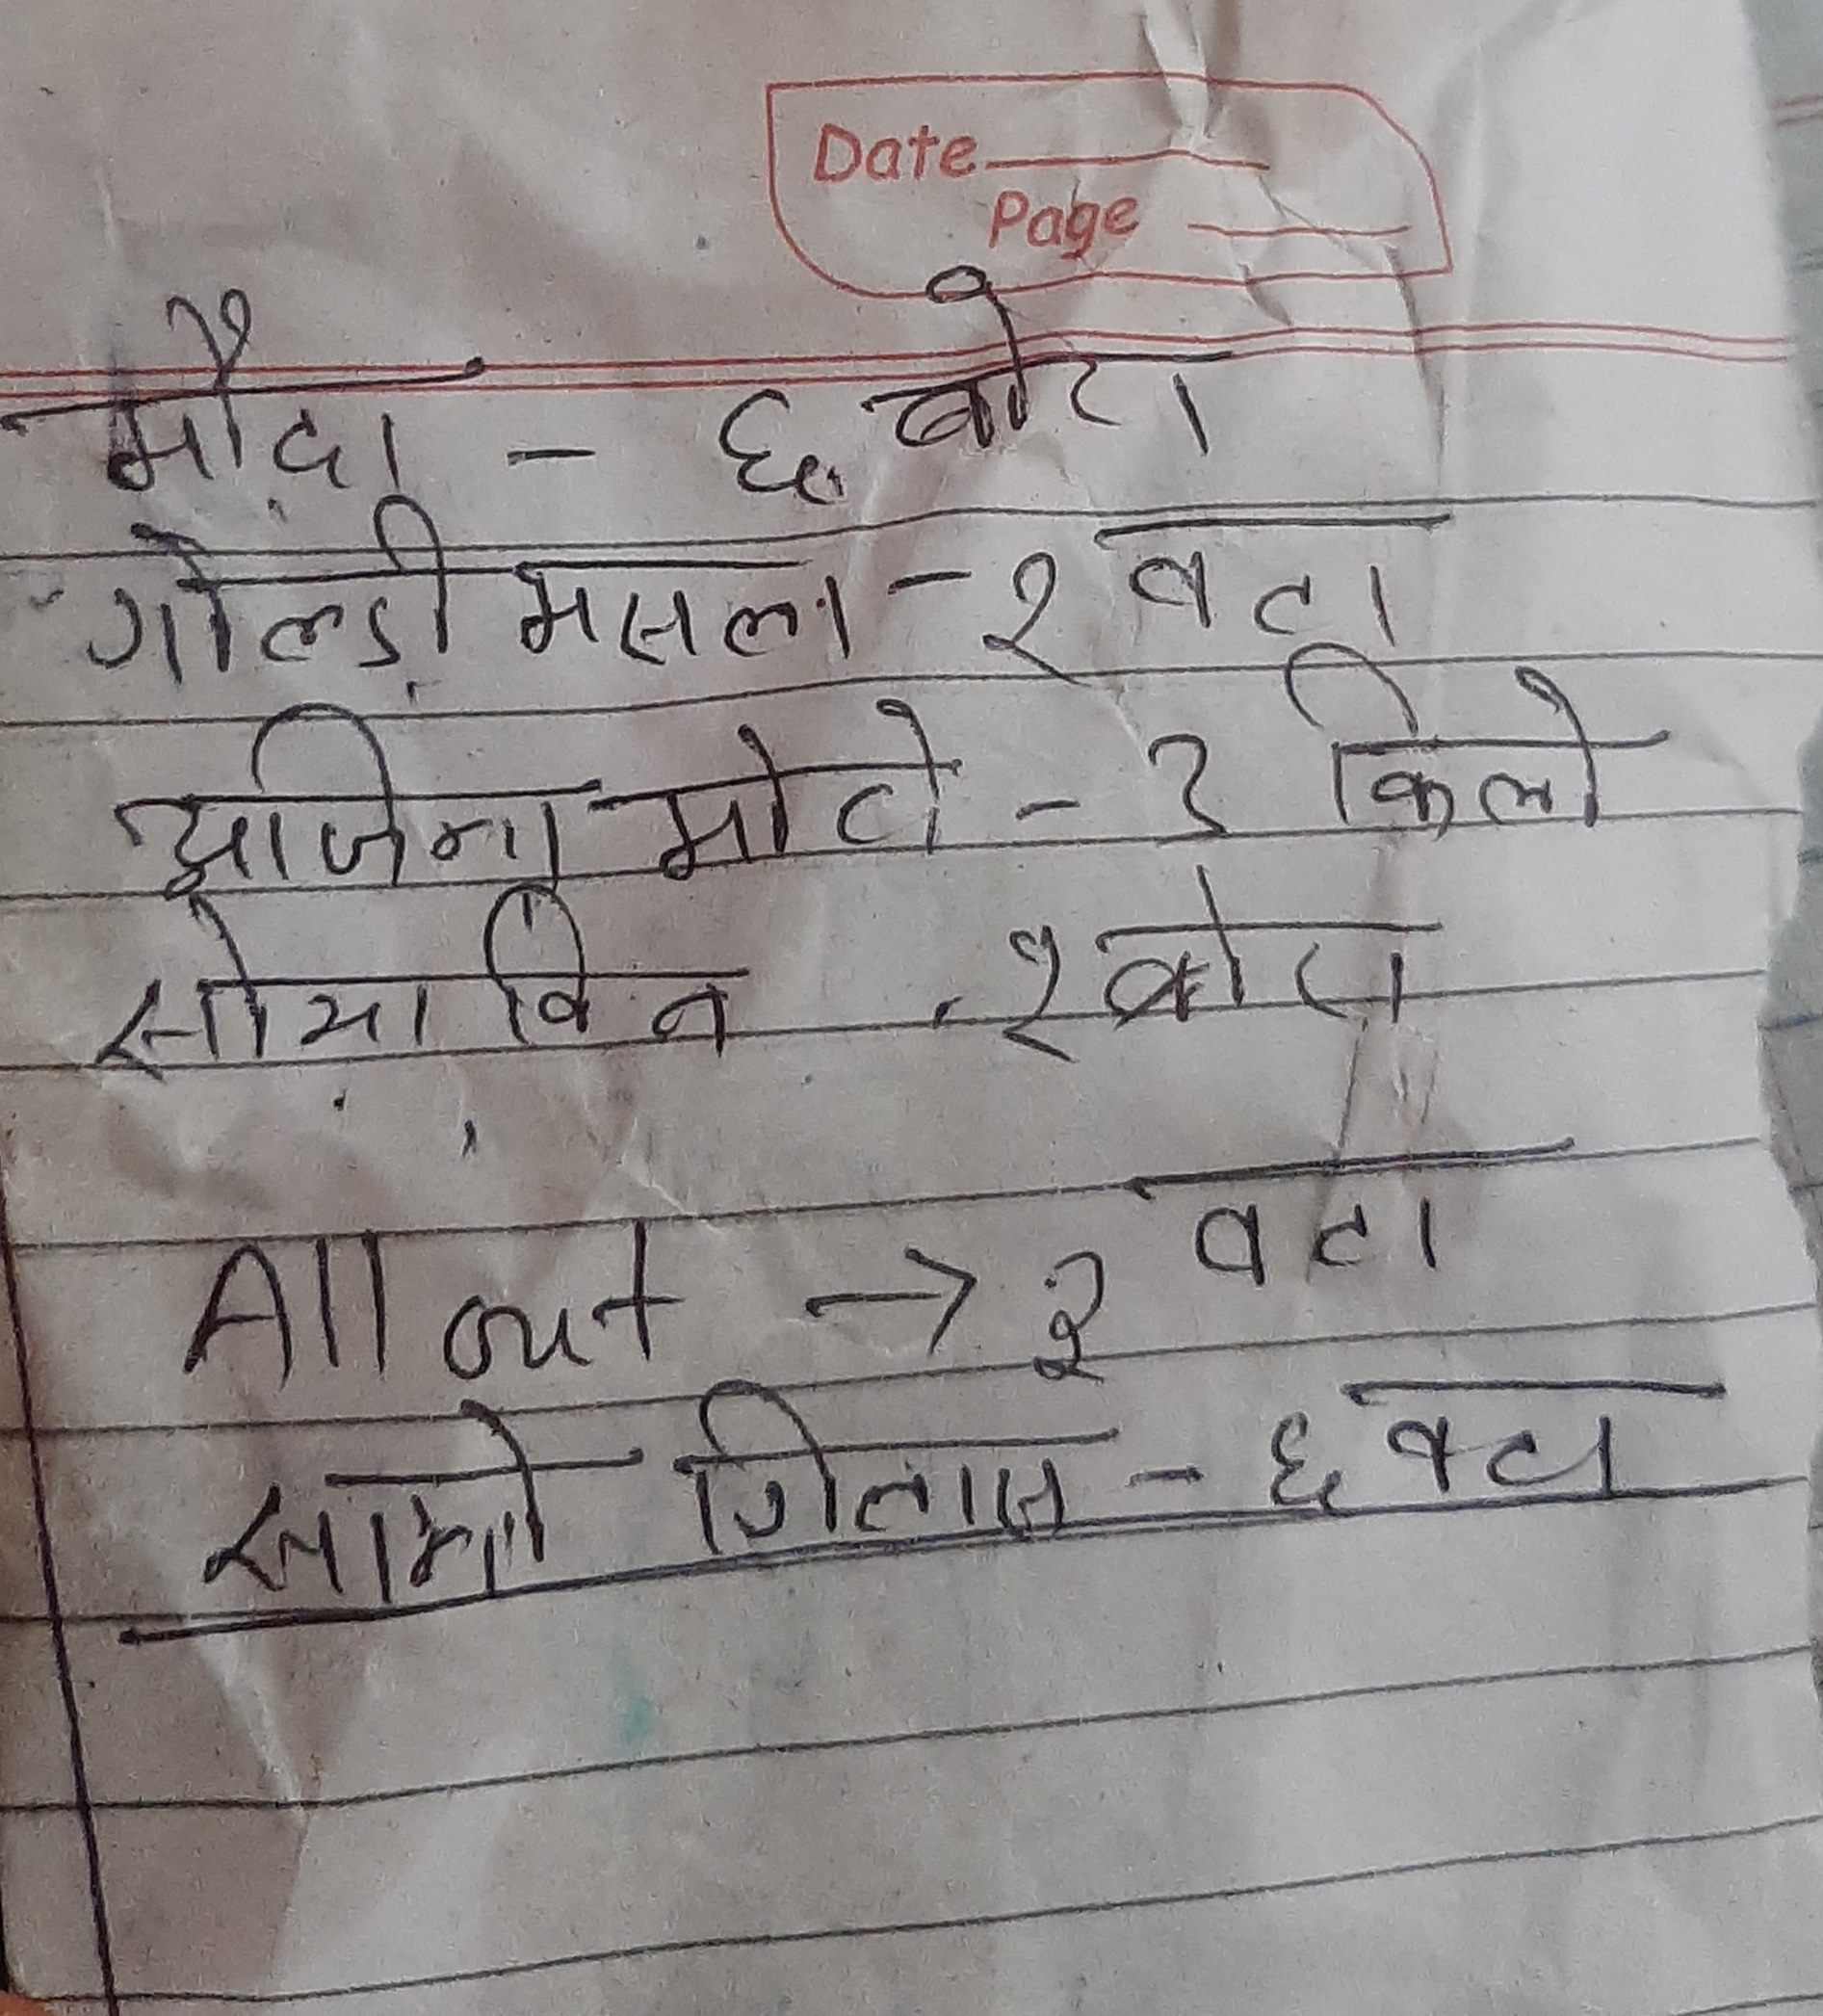 Date
Page
मौदा - ६ बोरा
गोल्डी मसला - २ वटा
आजिना मोटो - ३ किलो
सोयाविन . १ बोरा
All out → २ वटा
सानो गिलास - ६ वटा